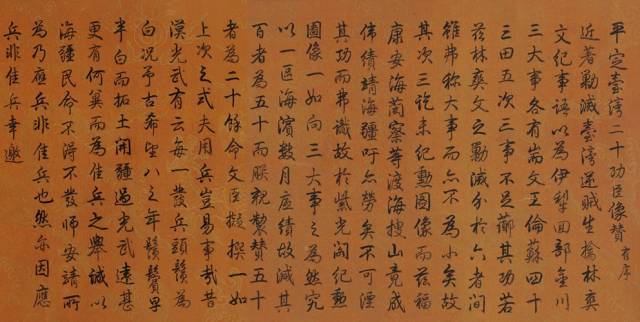 平定臺湾二十功臣像贊 有序
近著勦滅臺湾逆賊生擒林爽
文紀事語以為伊犁回部金川
三大事各有耑文王倫蘇四十
三田五次三事不足薌其功若
茲林爽文之勦滅介於六者間
雖弗稱大事而亦不為小矣故
其次三訖未紀勲圖像而茲福
康安海蘭察等渡海搜山竟成
偉績靖海疆吁亦勞矣不可湮
其功而弗識故於紫光閣紀勲
圖像一如向三大事之為然究
以一區海濱數月底績故減其
百者為五十而朕親製贊五十
者為二十餘命文臣擬撰一如
上次之式夫用兵豈易事哉昔
漢光武有云每一發兵頭鬚為
白況予古希望八之年鬚鬢早
半白而拓土開疆過光武遠甚
更有何冀而為佳兵之舉誠以
海疆民命不得不發師安靖所
為乃應兵非佳兵也然亦因應
兵非佳兵幸邀